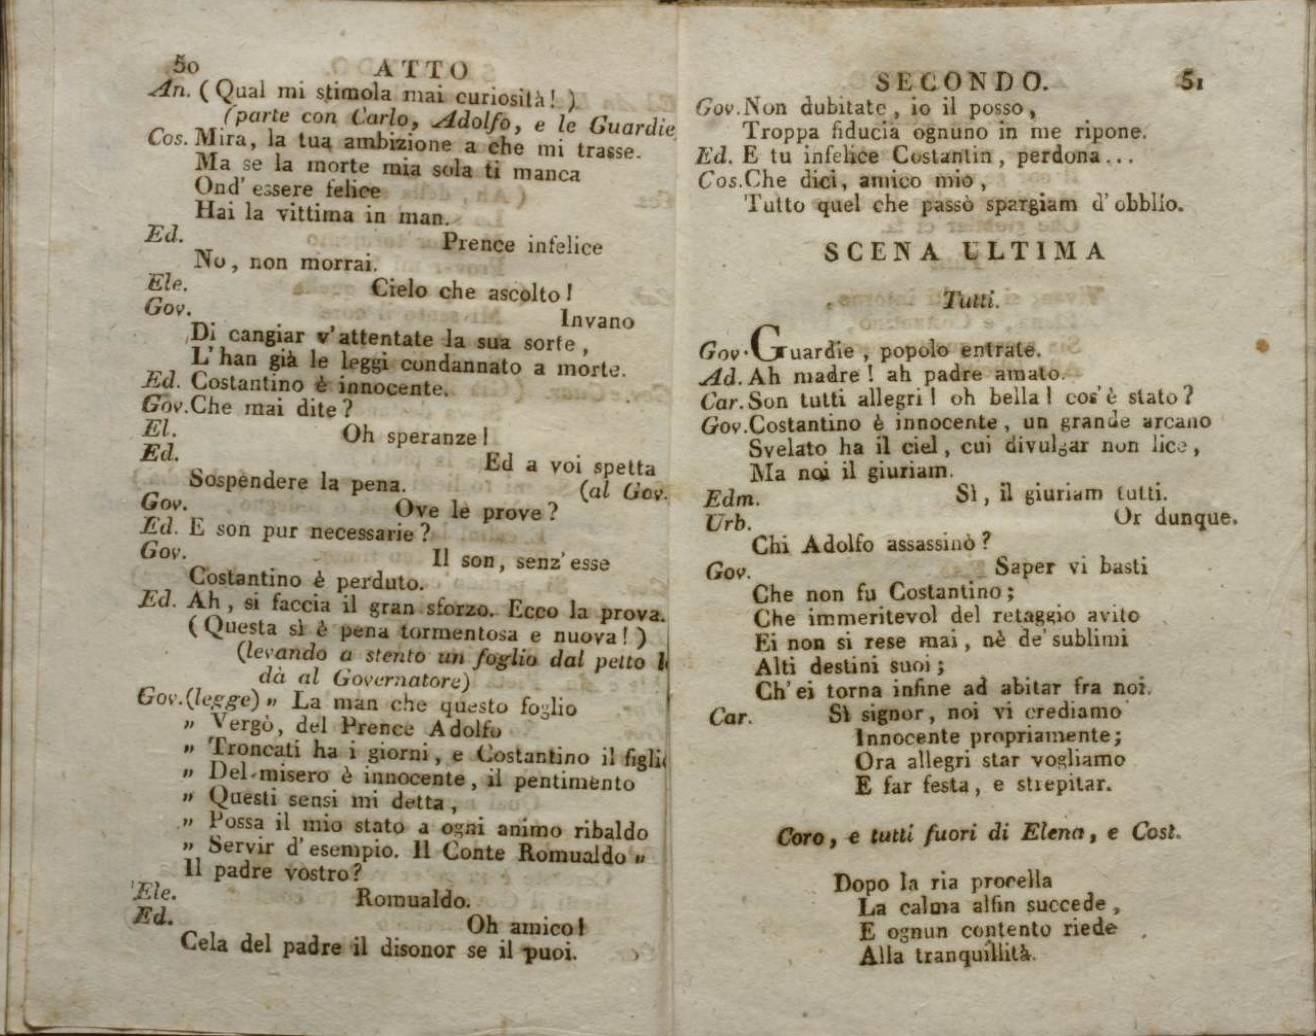 50 ATTO
An. (Qual mi stimola mai curiosità!)
(parte con Carlo, Adolfo, e le Guardie
Cos. Mira, la tua ambizione a che mi trasse.
Ma se la morte mia sola ti manca
Ond' essere felice
Hai la vittima in man.
Ed. Prence infelice
No, non morrai.
Ele. Cielo che ascolto!
Gov. Invano
Di cangiar v'attentate la sua sorte,
L'han già le leggi condannato a morte.
Ed. Costantino è innocente.
Gov. Che mai dite?
El. Oh speranze!
Ed. Ed a voi spetta
Sospendere la pena. (al Gov.
Gov. Ove le prove?
Ed. E son pur necessarie?
Gov. Il son, senz'esse
Costantino è perduto.
Ed. Ah, si faccia il gran sforzo. Ecco la prova.
(Questa sì è pena tormentosa e nuova!)
(levando a stento un foglio dal petto l
dà al Governatore)
Gov. (legge) „ La man che questo foglio
„ Vergò, del Prence Adolfo
„ Troncati ha i giorni, e Costantino il figli
„ Del misero è innocente, il pentimento
„ Questi sensi mi detta,
„ Possa il mio stato a ogni animo ribaldo
„ Servir d'esempio. Il Conte Romualdo „
Il padre vostro?
Ele. Romualdo.
Ed. Oh amico!
Cela del padre il disonor se il puoi.
SECONDO. 51
Gov. Non dubitate, io il posso,
Troppa fiducia ognuno in me ripone.
Ed. E tu infelice Costantin, perdona...
Cos. Che dici, amico mio,
Tutto quel che passò spargiam d'obblio.
SCENA ULTIMA
Tutti.
Gov. Guardie, popolo entrate.
Ad. Ah madre! ah padre amato.
Car. Son tutti allegri! oh bella! cos'è stato?
Gov. Costantino è innocente, un grande arcano
Svelato ha il ciel, cui divulgar non lice,
Ma noi il giuriam.
Edm. Sì, il giuriam tutti.
Urb. Or dunque.
Chi Adolfo assassinò?
Gov. Saper vi basti
Che non fu Costantino;
Che immeritevol del retaggio avito
Ei non si rese mai, nè de'sublimi
Alti destini suoi;
Ch'ei torna infine ad abitar fra noi.
Car. Sì signor, noi vi crediamo
Innocente propriamente;
Ora allegri star vogliamo
E far festa, e strepitar.
Coro, e tutti fuori di Elena, e Cost.
Dopo la ria procella
La calma alfin succede,
E ognun contento riede
Alla tranquillità.